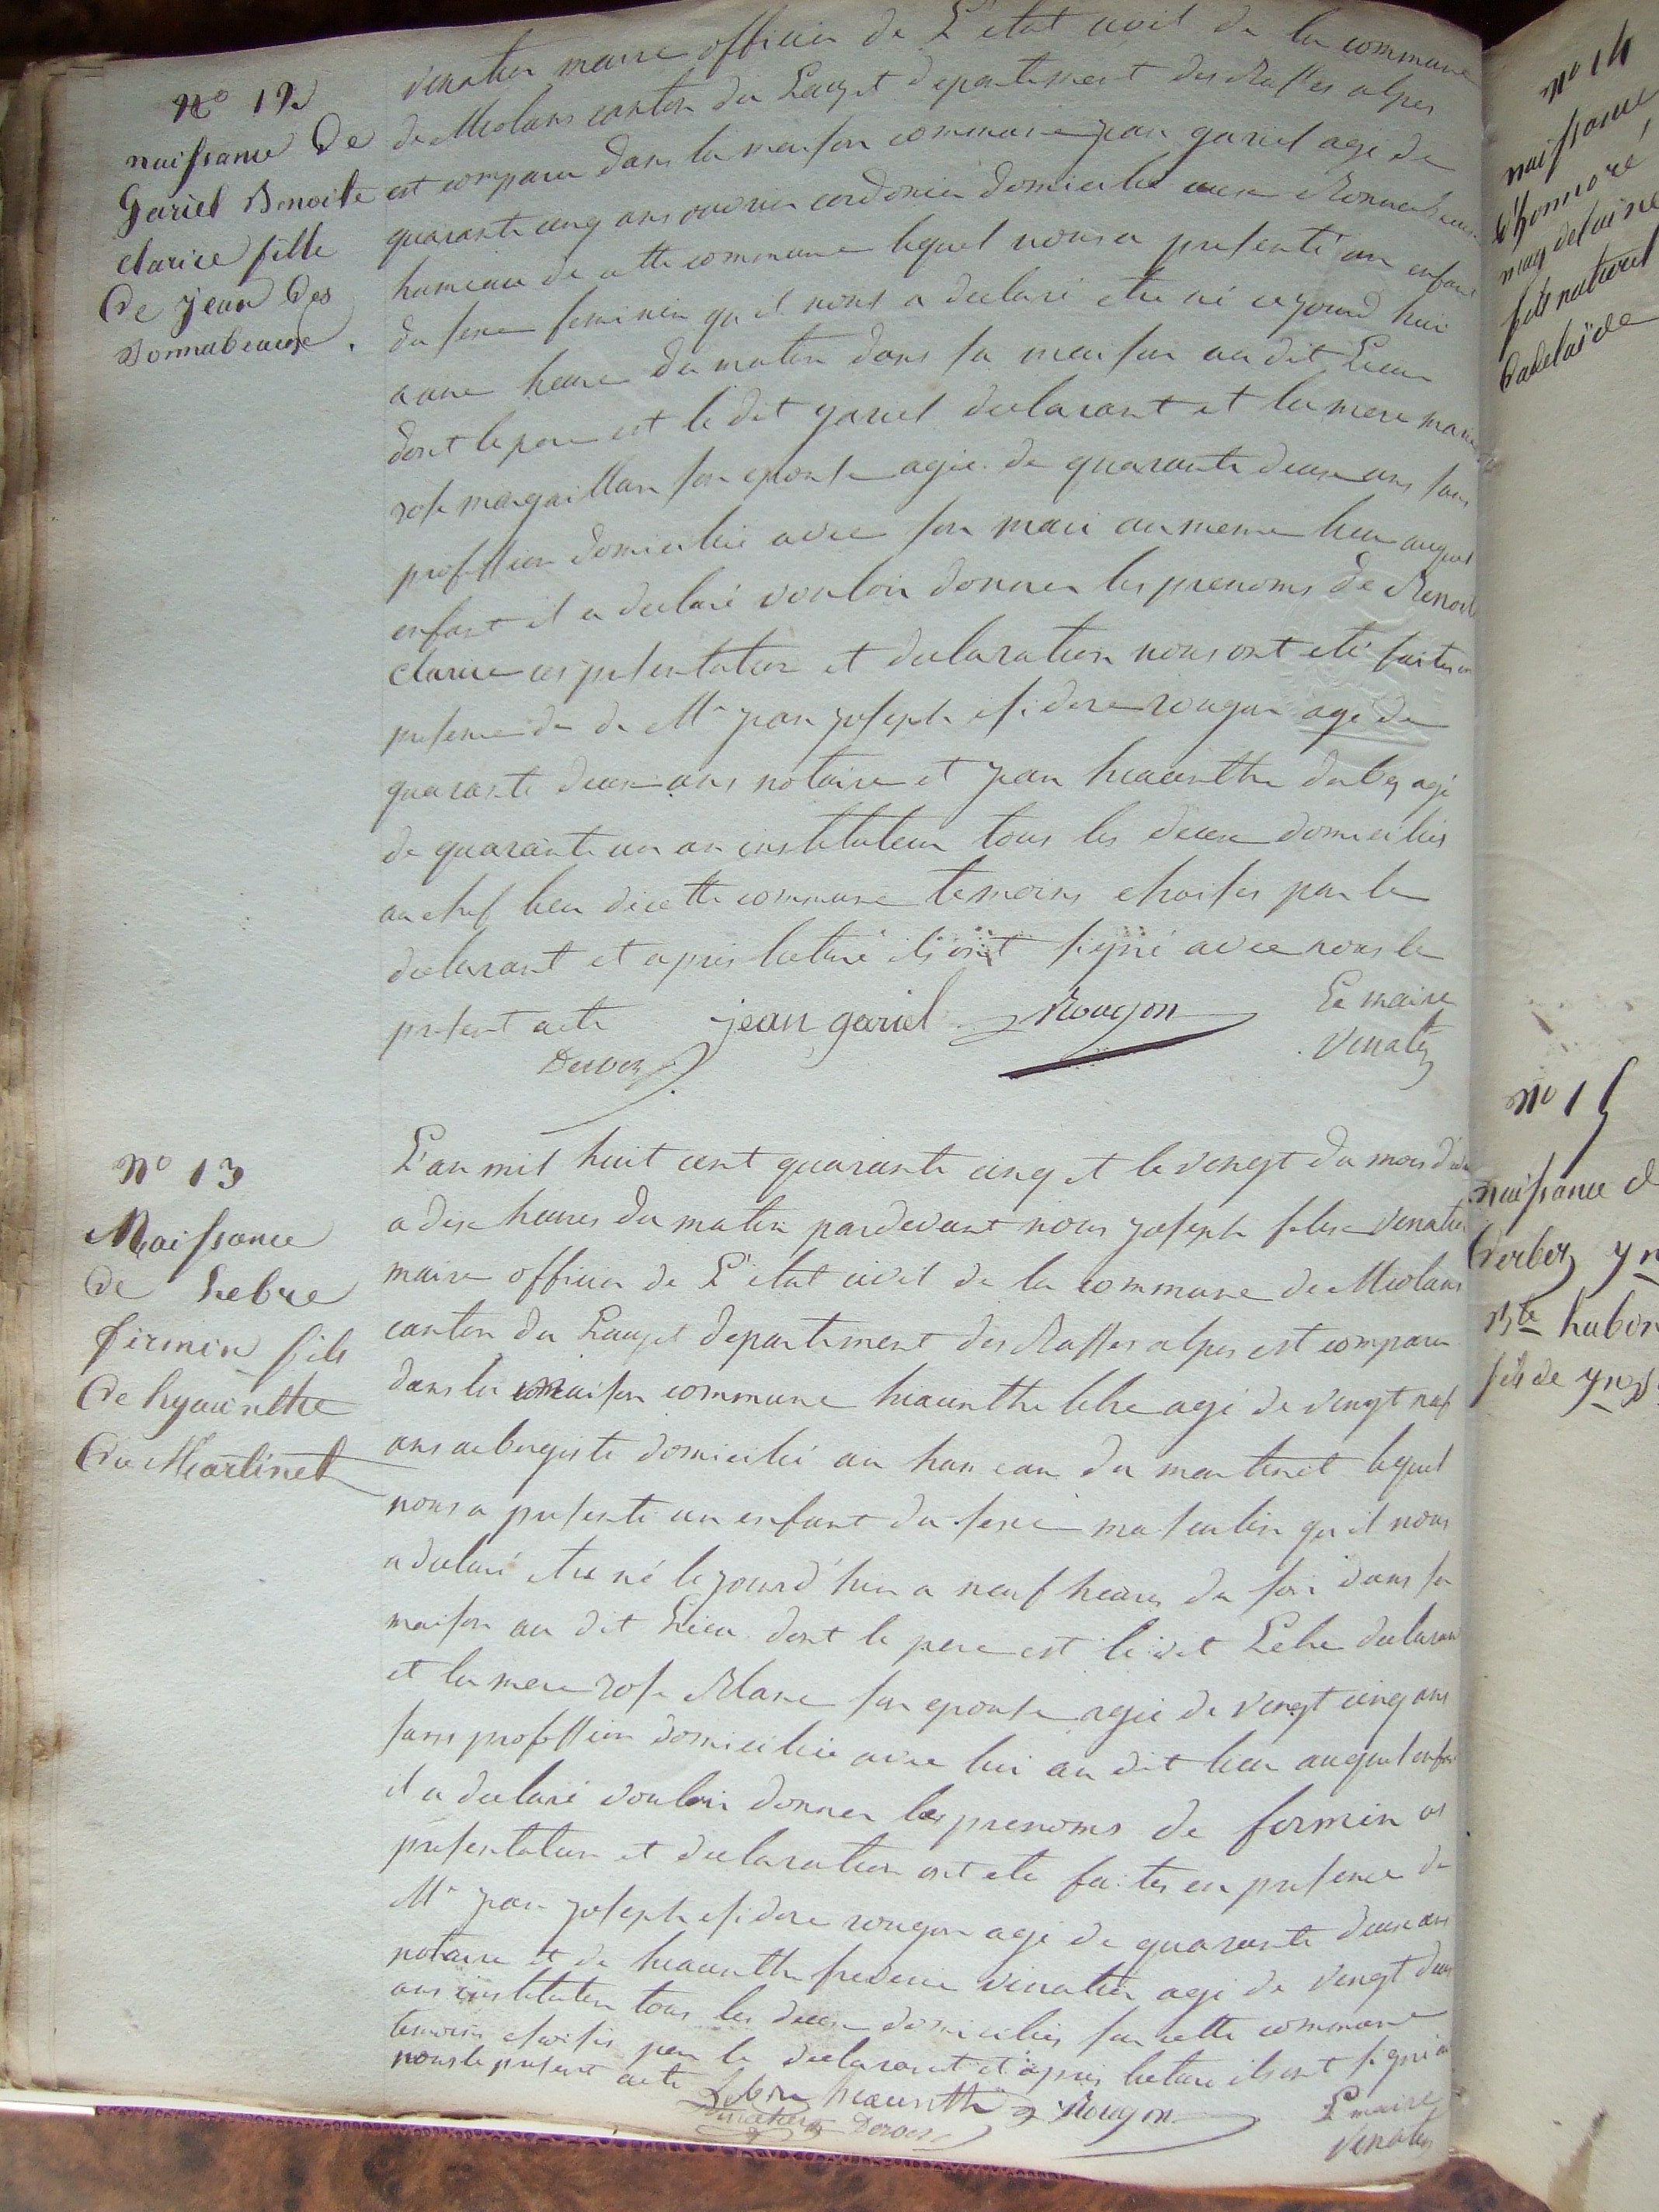 N° 12
naissance De
Gariel Benoite
clarice fille
De jean Des
Bonnabeaux.
venatier maire officier de L'etat civil de la commune
de Meolans canton du Lauzet departement des Basses alpes
est comparu dans la maison commune jean gariel agé de
quarante cinq ans ouvrier cordonier domicilié aux Bonnabeaux
hameau de cette commune lequel nous a presenté un enfant
du sexe feminin qu'il nous a declaré etre né cejourd'hui
a une heure du matin dans sa maison au dit Lieu
dont le pere est le dit gariel declarant et la mere marie
rose margaillan son epouse agée de quarante deux ans sans
profession domiciliée avec son mari au meme lieu auquel
enfant il a declaré vouloir donner les prenoms de Benoite
clarice ces presentation et declaration nous ont eté faites en
presence de de Mr jean joseph isidore rougon agé de
quarante deux ans notaire et jean hiacinthe derbez agé
de quarante un an instituteur tous les deux domiciliés
au chef lieu de cette commune temoins choisis par le
declarant et apres lecture ils ont signé avec nous le
present acte jean gariel Rougon Le maire
Derbez Venatier
N° 13
Naissance
De Lebre
firmin fils
De hyacinthe
Du Martinet
L'an mil huit cent quarante cinq et le vingt du mois d'
a dix heures du matin pardevant nous joseph felix venatier
maire officier de L'etat civil de la commune de Meolans
canton du Lauzet departement des Basses alpes est comparu
dans la maison commune hiacinthe lebre agé de vingt neuf
ans aubergiste domicilié au hameau du martinet lequel
nous a presenté un enfant du sexe masculin qu'il nous
a declaré etre né le jourd'hier a neuf heures du soir dans sa
maison au dit Lieu dont le pere est le dit Lebre declarant
et la mere rose Blanc son epouse agée de vingt cinq ans
sans profession domiciliée avec lui au dit lieu auquel enfant
il a declaré vouloir donner les prenoms de firmin ces
presentation et declaration ont eté faites en presence de
Mr jean joseph isidore rougon agé de quarante deux ans
notaire et de hiacinthe frederic venatier agé de vingt deux
ans instituteur tous les deux domiciliés sur cette commune
temoins choisis par le declarant et apres lecture ils ont signé avec
nous le present acte Lebre hiacinthe Rougon Le maire
Venatier Derbez Venatier
N° 14
naissance
D'honnoré
magdelaine
fils naturel
D'adelaïde
N° 15
naissance d
Derbez
Bte
fils de